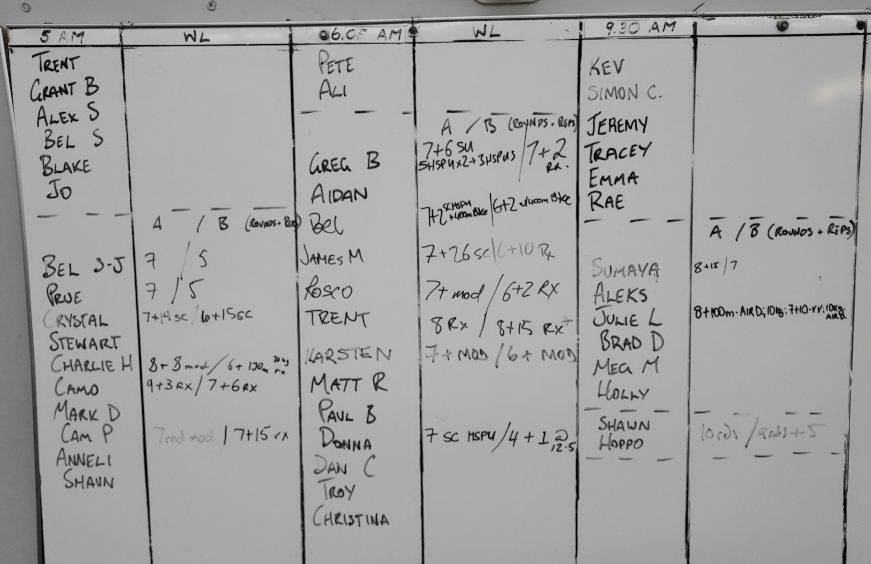 5 AM WL
TRENT
GRANT B
ALEX S
BEL S
BLAKE
JO
A / B (ROUNDS + REPS)
BEL S-J 7 / 5
PRUE 7 / 5
CRYSTAL 7+14 SC / 6+15 SC
STEWART
CHARLIE H 8+8 mod / 6+120m 20kg rx
CAMO 9+3 RX / 7+6 RX
MARK D
CAM P 7rnd mod / 7+15 rx
ANNELI
SHAUN
06.05 AM WL
PETE
ALI
A / B (ROUNDS + REPS)
GREG B 7+6 SU 5HSPU x2 + 3HSPUS / 7+2 RX.
AIDAN
BEL 7+2 SCHSPU +400m Bike / 6+2 w/400m Bike
JAMES M 7+26 SC / 6+10 Rx
ROSCO 7+ mod / 6+2 RX
TRENT 8 RX / 8+15 RX+
KARSTEN 7+ MOD / 6+ MOD
MATT R
PAUL B
DONNA 7 SC HSPU / 4 + 1 @ 12.5
DAN C
TROY
CHRISTINA
9.30 AM
KEV
SIMON C.
JEREMY
TRACEY
EMMA
RAE
A / B (ROUNDS + REPS)
SUMAYA 8+15 / 7
ALEKS
JULIE L 8+100m - AIR D; 10kg; 7+10
BRAD D
MEG M
HOLLY
SHAWN
HOPPO 10rds / 9rds + 5